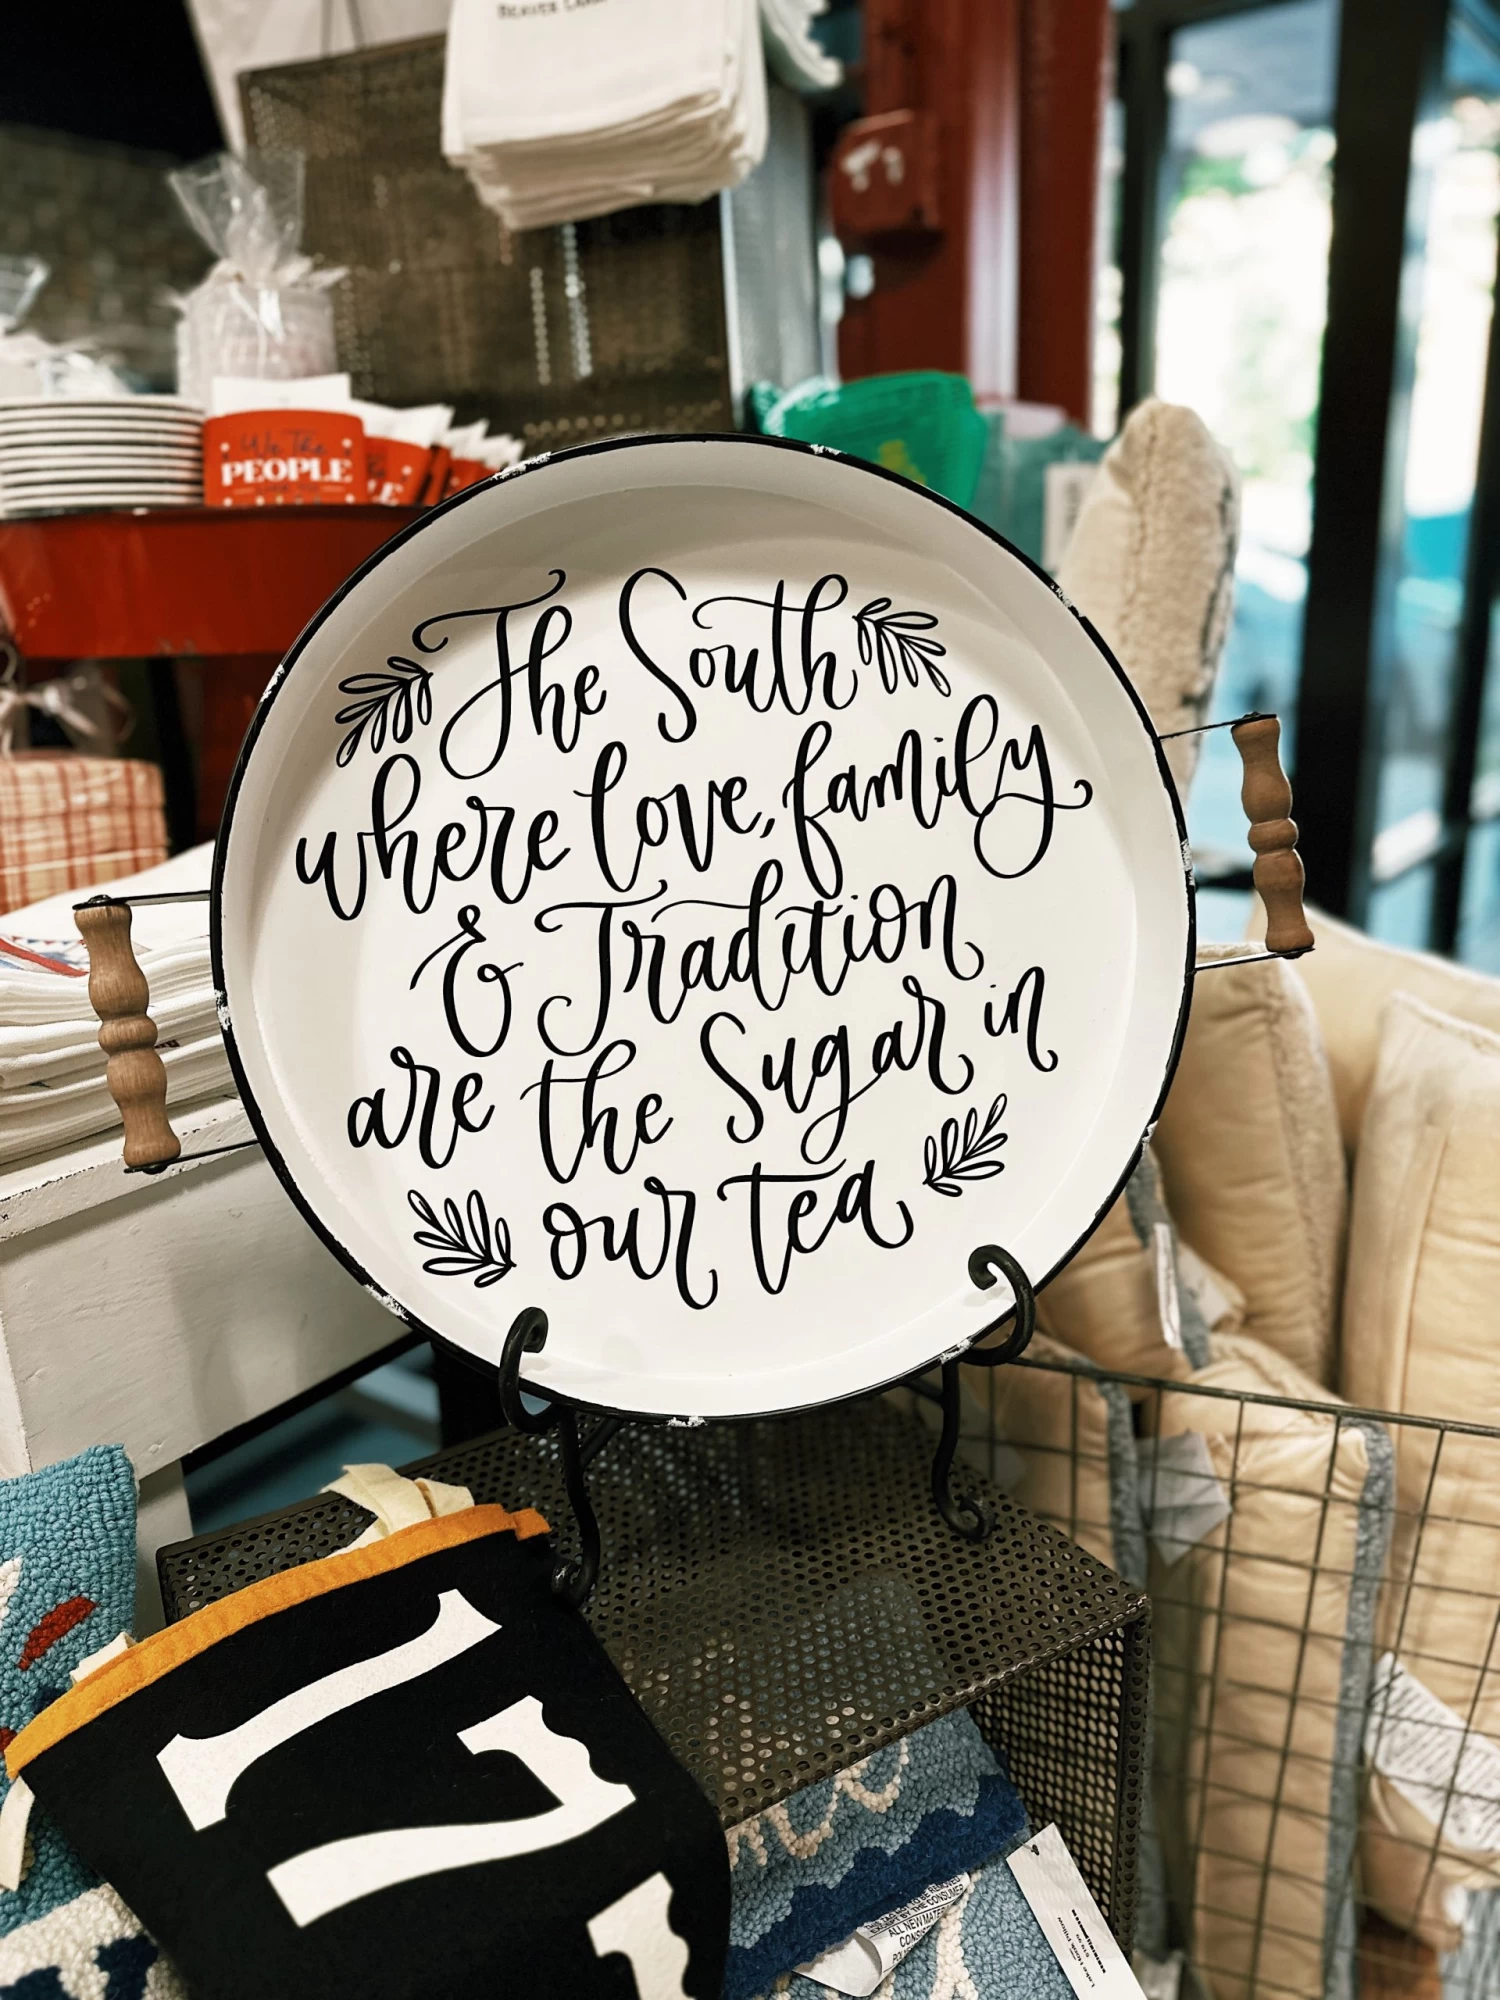 BEAVER
We The
PEOPLE
The South
where love, family
& Tradition
are the Sugar in
our tea
17
ALL NEW MATERIAL